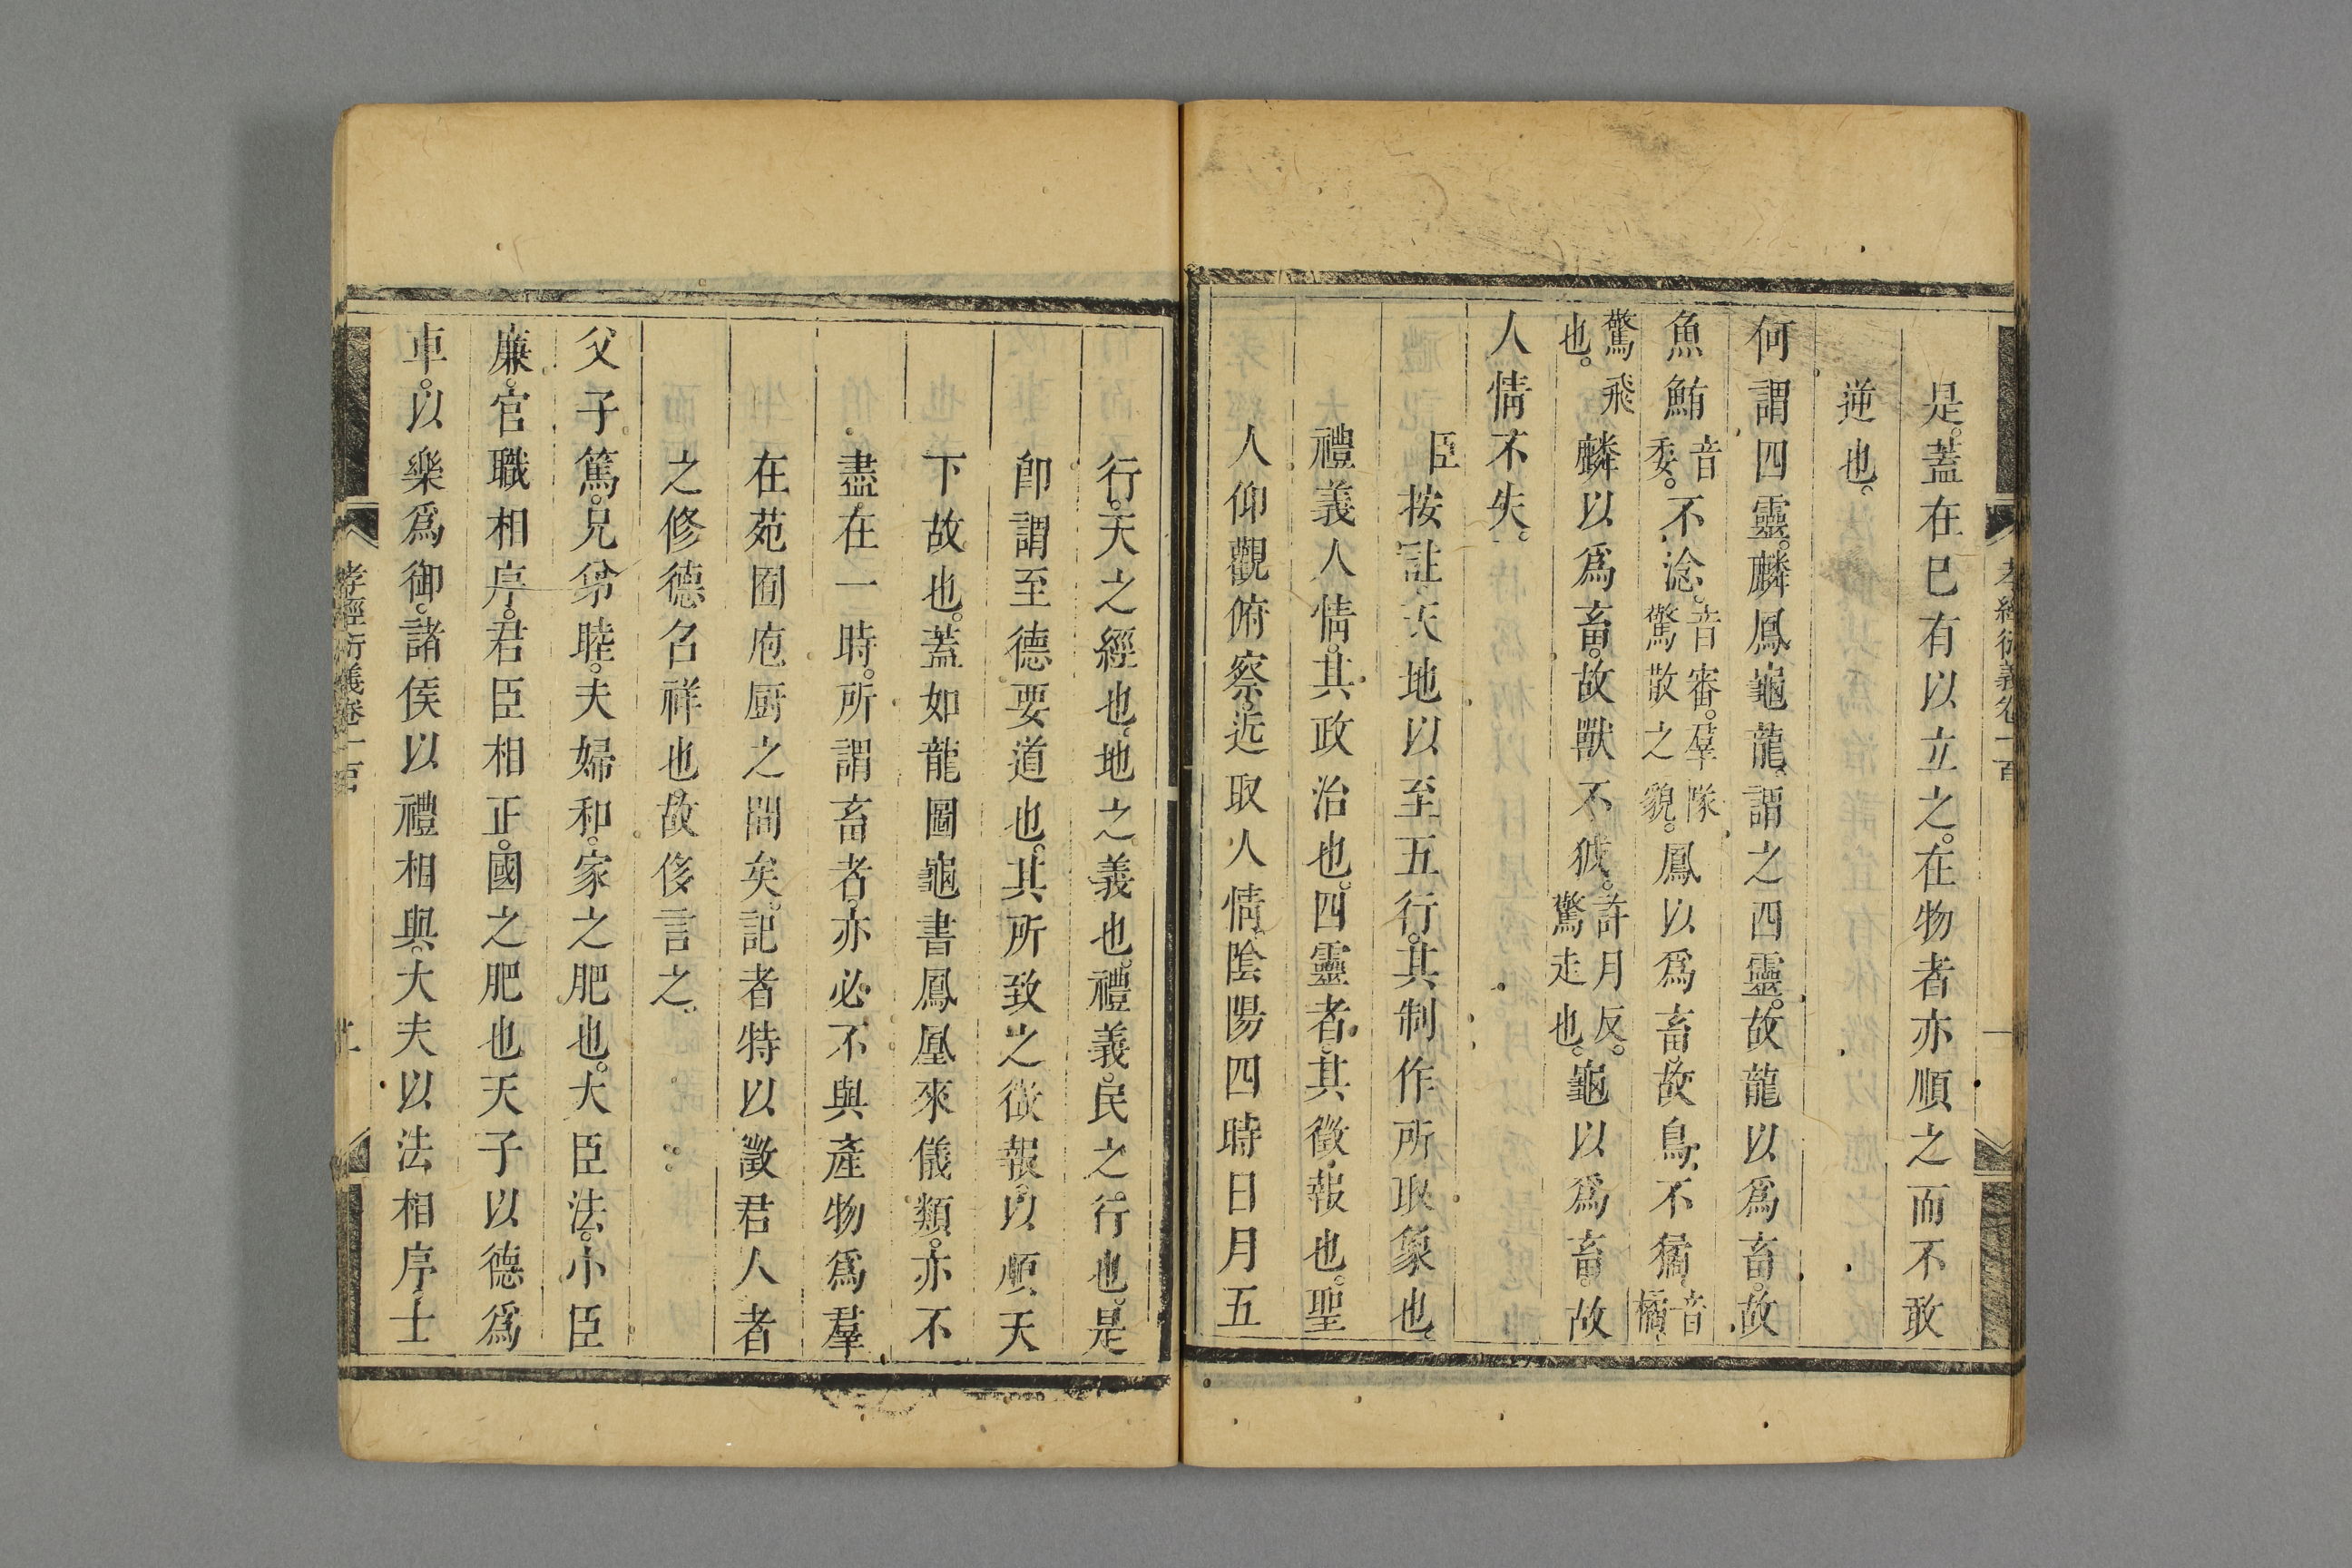 孝經衍義卷一百
是。蓋在已有以立之。在物者亦順之而不敢
逆也。
何謂四靈。麟鳳龜龍。謂之四靈。故龍以爲畜。故
魚鮪音委。不淰。音審。羣隊驚散之貌。鳳以爲畜。故鳥不獝。音橘
驚飛也。麟以爲畜。故獸不狘。許月反。驚走也。龜以爲畜。故
人情不失。
臣按註天地以至五行。其制作所取象也。
禮義人情。其政治也。四靈者。其徵報也。聖
人仰觀俯察。近取人情。陰陽四時日月五
行。天之經也。地之義也。禮義。民之行也。是
卽謂至德要道也。其所致之徵報。以順天
下故也。蓋如龍圖龜書鳳凰來儀類。亦不
盡在一時。所謂畜者。亦必不與產物爲羣
在苑囿庖厨之間矣。記者特以徵君人者
之修德召祥也。故侈言之。
父子篤。兄弟睦。夫婦和。家之肥也。大臣法。小臣
廉。官職相序。君臣相正。國之肥也天子以德爲
車。以樂爲御。諸侯以禮相與。大夫以法相序。士
孝經衍義卷一百